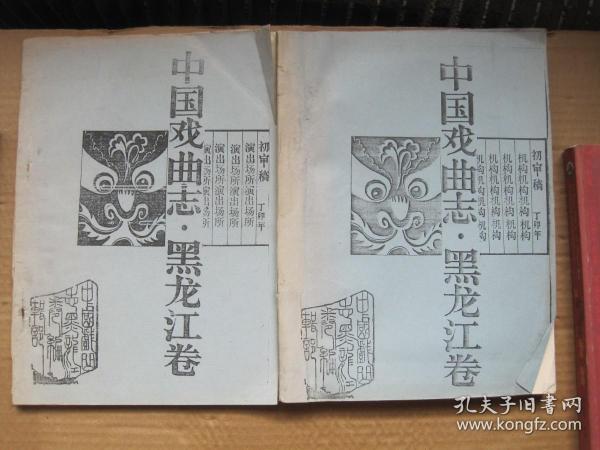 中国戏曲志·黑龙江卷
初审稿
丁卯年
演出场所演出场所
演出场所演出场所
演出场所演出场所
演出场所演出场所
中国戏曲志·黑龙江卷
初审稿
丁卯年
机构机构机构机构
机构机构机构机构
机构机构机构机构
机构机构机构机构
孔夫子旧书网
www.kongfz.com